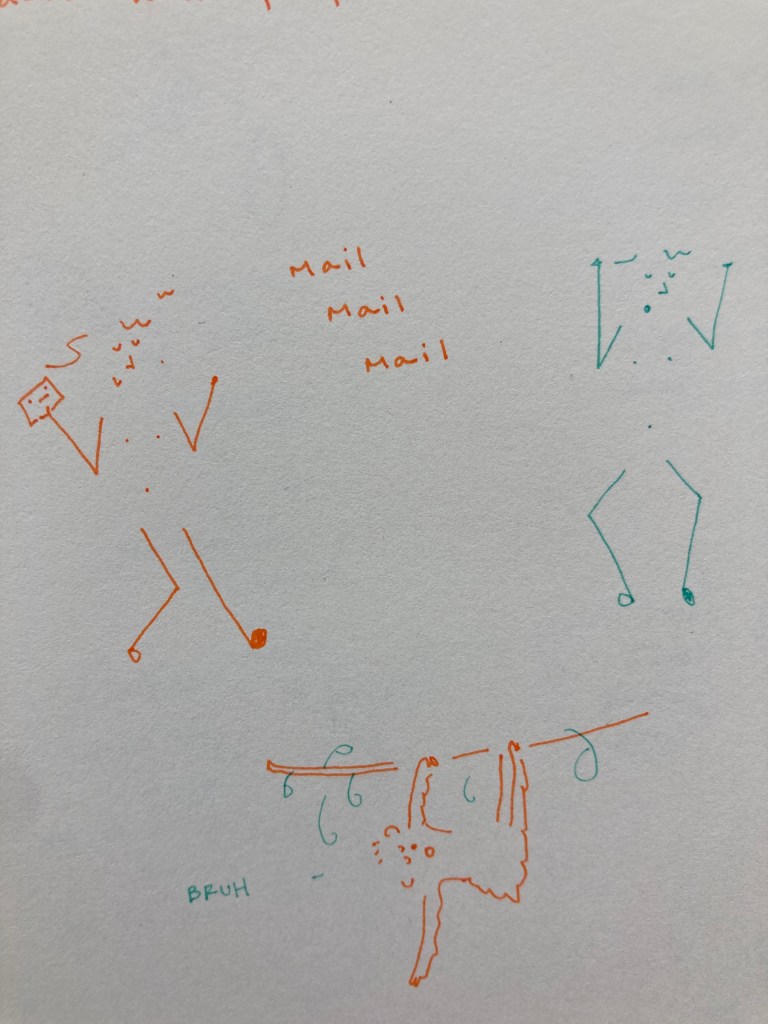 Mail
Mail
Mail
BRUH